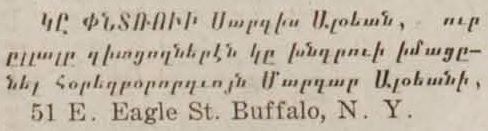 ԿԸ ՓՆՏՌՈՒԻ Սարգիս Ալօեան, ուր
ըլլալը գիտցողներէն կը խնդրուի իմացը-
նել Հօրեղբօրորդւոյն Մարգար Ալօեանի,
51 E. Eagle St. Buffalo, N. Y.